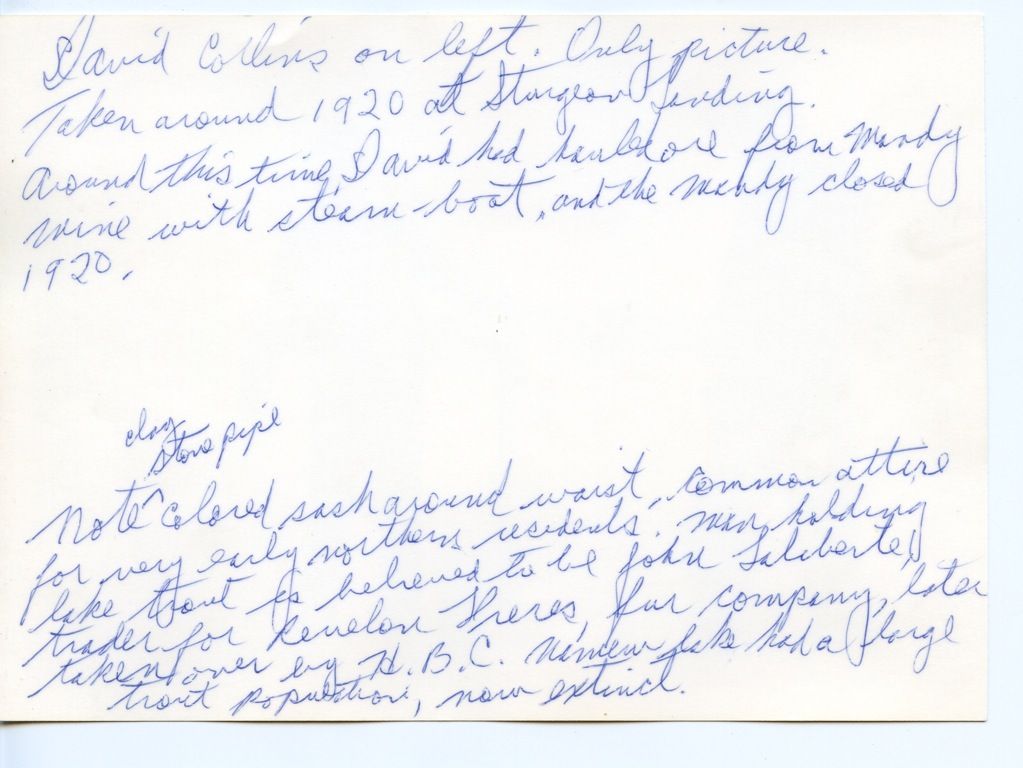 David Collins on left. Only picture.
Taken around 1920 at Sturgeon Landing.
Around this time, David had hauled ore from Mandy
mine with steam boat, and the Mandy closed
1920.
clay
stone pipe
Note ^ colored sash around waist, common attire
for very early northern residents. Man holding
lake trout is believed to be John Laliberte,
trader for Revelon Freres, fur company, later
taken over by H.B.C. Namew Lake had a large
trout population, now extinct.